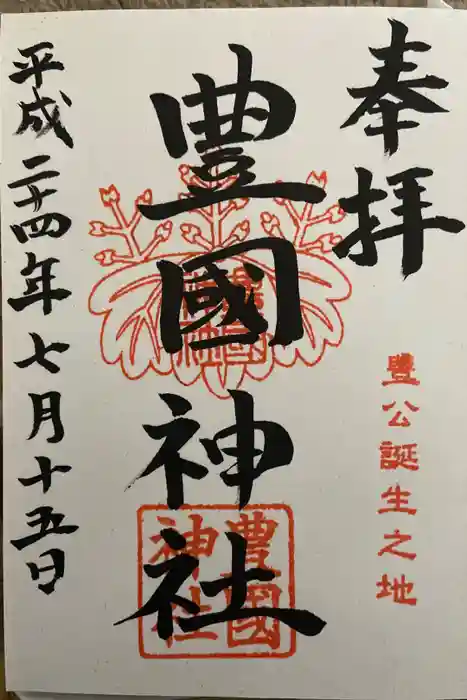 奉拝
豊公誕生之地
豊國神社
豊國
神社
平成二十四年七月十五日